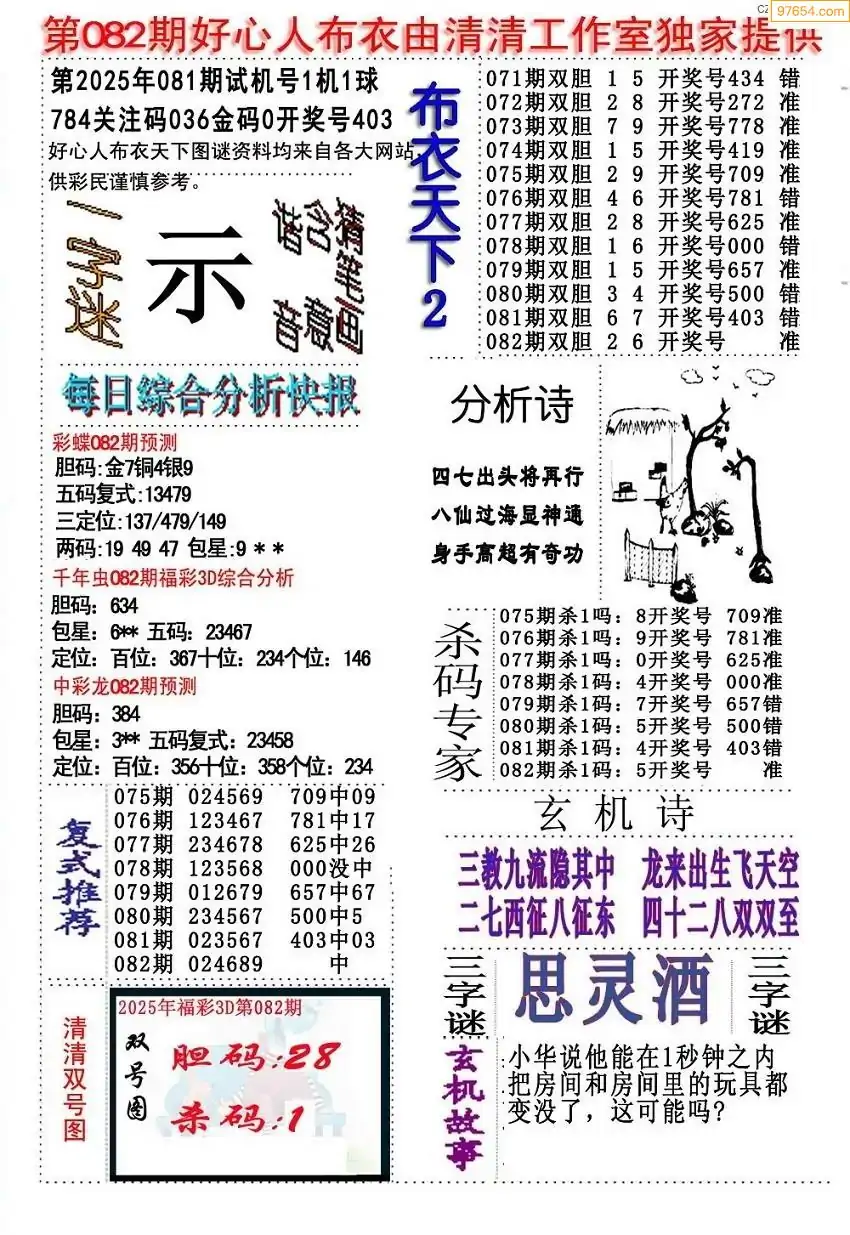 97654.com
第082期好心人布衣由清清工作室独家提供
第2025年081期试机号1机1球
784关注码036金码0开奖号403
好心人布衣天下图谜资料均来自各大网站,
供彩民谨慎参考。
一字迷
示
猜笔画
含意
谐音
布衣天下2
071期双胆 1 5 开奖号434 错
072期双胆 2 8 开奖号272 准
073期双胆 7 9 开奖号778 准
074期双胆 1 5 开奖号419 准
075期双胆 2 9 开奖号709 准
076期双胆 4 6 开奖号781 错
077期双胆 2 8 开奖号625 准
078期双胆 1 6 开奖号000 错
079期双胆 1 5 开奖号657 准
080期双胆 3 4 开奖号500 错
081期双胆 6 7 开奖号403 错
082期双胆 2 6 开奖号 准
每日综合分析快报
彩蝶082期预测
胆码:金7铜4银9
五码复式:13479
三定位:137/479/149
两码:19 49 47 包星:9 * *
千年虫082期福彩3D综合分析
胆码：634
包星：6** 五码：23467
定位：百位：367十位：234个位：146
中彩龙082期预测
胆码：384
包星：3** 五码复式：23458
定位：百位：356十位：358个位：234
分析诗
四七出头将再行
八仙过海显神通
身手高超有奇功
杀码专家
075期杀1吗：8开奖号 709准
076期杀1吗：9开奖号 781准
077期杀1吗：0开奖号 625准
078期杀1码：4开奖号 000准
079期杀1码：7开奖号 657错
080期杀1码：5开奖号 500错
081期杀1码：4开奖号 403错
082期杀1码：5开奖号 准
复式推荐
075期 024569 709中09
076期 123467 781中17
077期 234678 625中26
078期 123568 000没中
079期 012679 657中67
080期 234567 500中5
081期 023567 403中03
082期 024689 中
玄机诗
三教九流隐其中 龙来出生飞天空
二七西征八征东 四十二八双双至
三字谜
思灵酒
三字谜
清清双号图
2025年福彩3D第082期
双号图
胆码:28
杀码:1
玄机故事
小华说他能在1秒钟之内
把房间和房间里的玩具都
变没了，这可能吗?